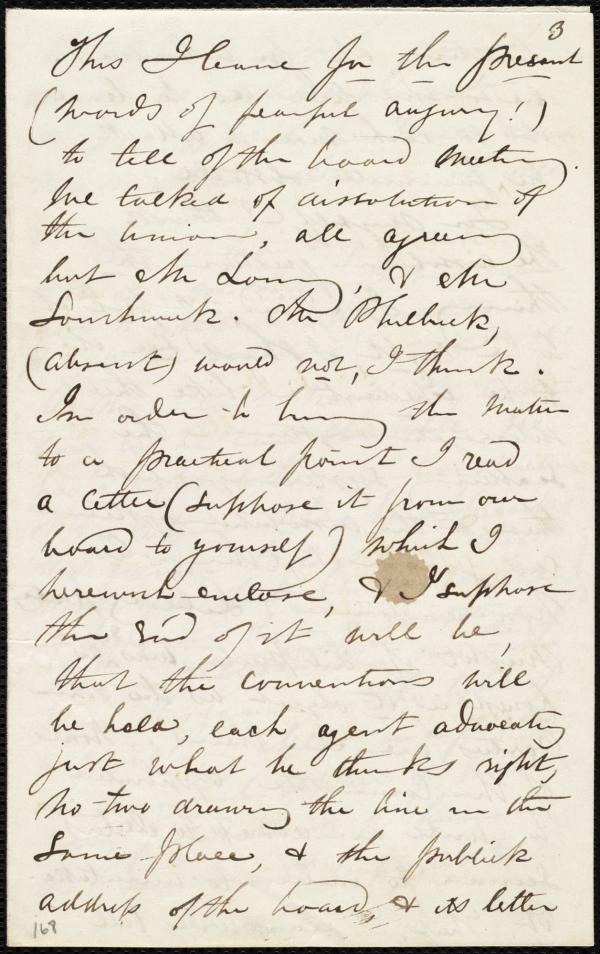 3
This I leave for the present
(words of fearful augury!)
to tell of the board meeting.
We talked of dissolution of
the union, all agreeing
but Mr Loring, & Mr
Southwick. Mr Philbrick,
(absent) would not, I think.
In order to bring the matter
to a practical point I read
a letter (suppose it from our
board to yourself) which I
herewith enclose, & I suppose
the end of it will be,
that the conventions will
be held, each agent advocating
just what he thinks right,
no two drawing the line in the
same place, & the publick
address of the board, & its letter
168